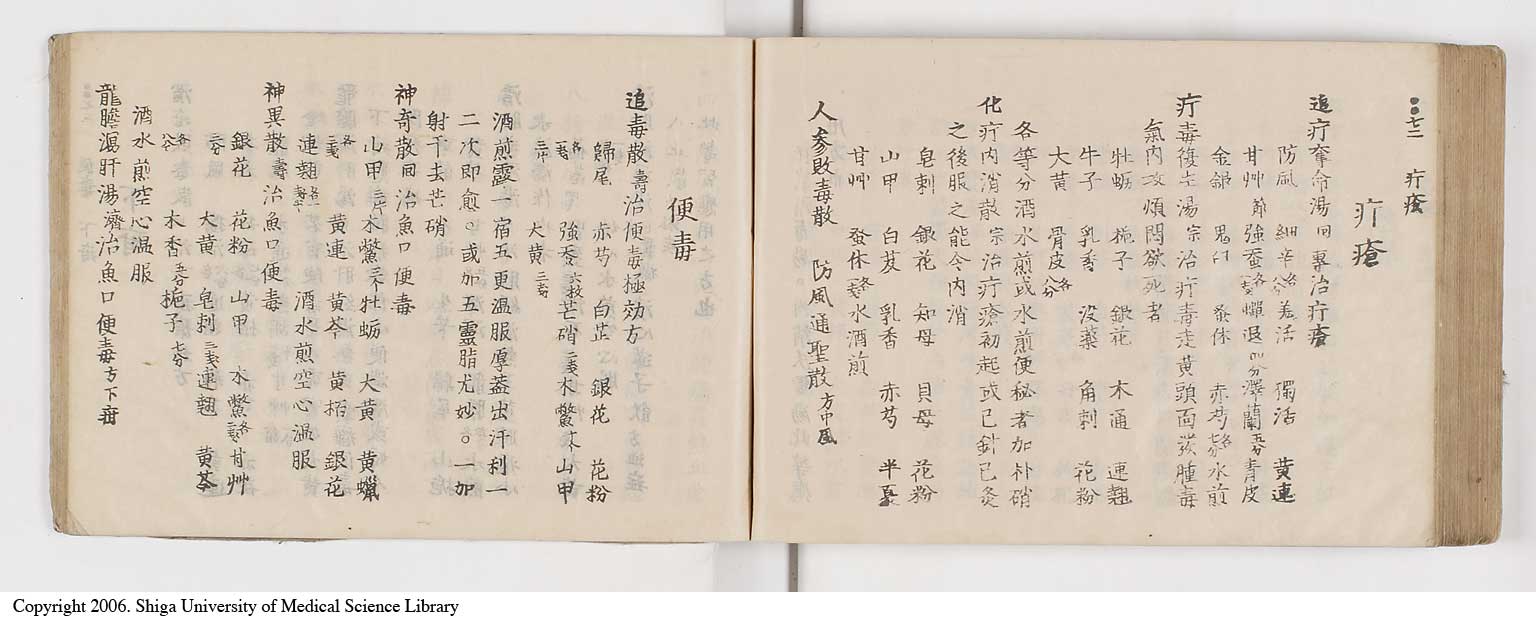 七二 疔瘡
疔瘡
追疔奪命湯 回 專治疔瘡
防風 細辛 羌活 獨活 黄連
甘艸 節 強蚕 各 蟬退 四分 澤蘭 五分 青皮
金銀 鬼臼 蚤休 赤芍 各七分 水煎
疔毒復生湯 宗 治疔毒走黄頭面發腫毒
氣内攻煩悶欲死者
牡蛎 梔子 銀花 木通 連翹
牛子 乳香 没薬 角刺 花粉
大黄 骨皮 各八分
各等分酒水煎或水煎便秘者加朴硝
化疔内消散 宗 治疔瘡初起或已針已灸
之後服之能令内消
皂刺 銀花 知母 貝母 花粉
山甲 白芨 乳香 赤芍 半夏
甘艸 蚤休 水酒煎
人参敗毒散 防風通聖散 方中風
便毒
追毒散 壽 治便毒極効方
歸尾 赤芍 白芷 銀花 花粉
各 強蚕 六枚 芒硝 木鱉 六 山甲
大黄 三匁
酒煎露一宿五更温服厚蓋出汗利一
二次即愈。或加五靈脂尤妙。一加
射干去芒硝
神奇散 回 治魚口便毒
山甲 二十 木鱉 三个 牡蛎 大黄 黄蠟
各 黄連 黄芩 黄栢 銀花
連翹 酒水煎空心温服
神異散 壽 治魚口便毒
銀花 花粉 山甲 木鱉 各 甘艸
三分 大黄 皂刺 連翹 黄芩
各 木香 梔子 七分
酒水煎空心温服
龍膽瀉肝湯 濟 治魚口便毒方下疳
Copyright 2006. Shiga University of Medical Science Library